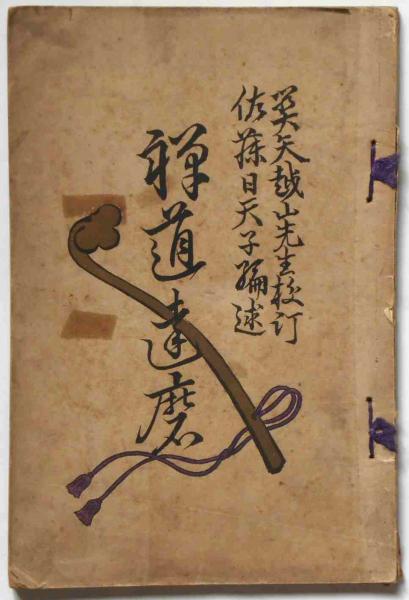 笑矢越山先生校訂
佐藤日天子編述
禅道達磨